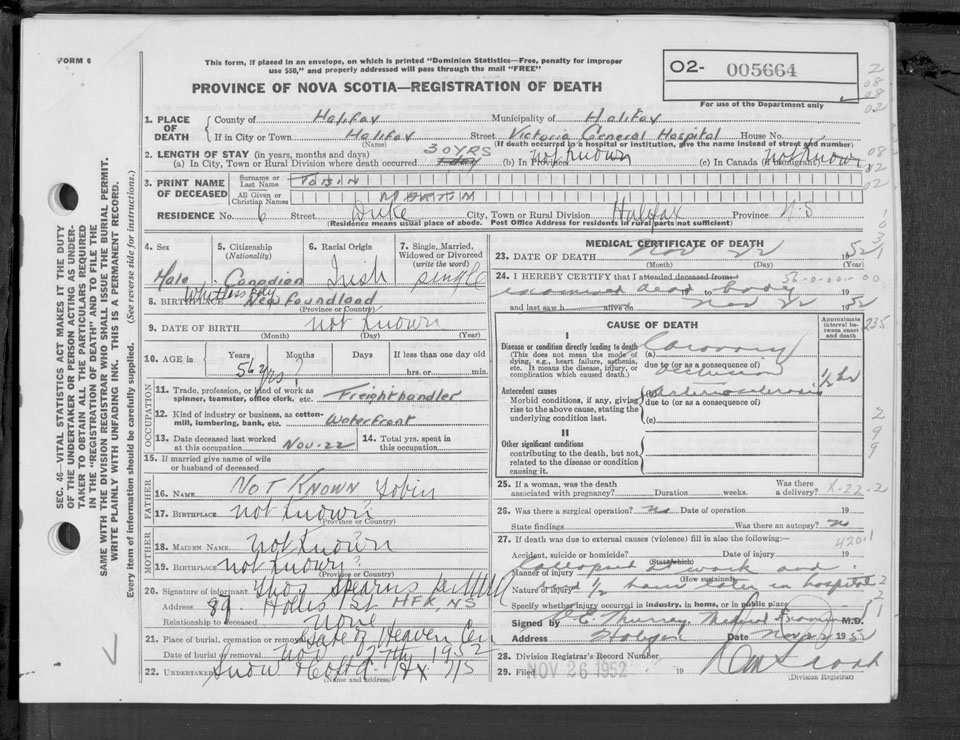 FORM 6
This form, if placed in an envelope, on which is printed "Dominion Statistics—Free, penalty for improper
use $50," and properly addressed will pass through the mail "FREE"
PROVINCE OF NOVA SCOTIA—REGISTRATION OF DEATH
O2- 005664
For use of the Department only
SEC. 46—VITAL STATISTICS ACT MAKES IT THE DUTY
OF THE UNDERTAKER OR PERSON ACTING AS UNDER-
TAKER TO OBTAIN ALL THE PARTICULARS REQUIRED
IN THE "REGISTRATION OF DEATH" AND TO FILE THE
SAME WITH THE DIVISION REGISTRAR WHO SHALL ISSUE THE BURIAL PERMIT.
WRITE PLAINLY WITH UNFADING INK. THIS IS A PERMANENT RECORD.
Every item of information should be carefully supplied. (See reverse side for instructions.)
1. PLACE OF DEATH
County of Halifax Municipality of Halifax
If in City or Town Halifax Street Victoria General Hospital House No.
(Name) (If death occurred in a hospital or institution, give the name instead of street and number)
2. LENGTH OF STAY (in years, months and days) 30 YRS
(a) In City, Town or Rural Division where death occurred 1 day (b) In not known (c) In Canada (if immigrant) not known
3. PRINT NAME OF DECEASED
Surname or Last Name TOBIN
All Given or Christian Names MARTIN
RESIDENCE No. 6 Street Duke City, Town or Rural Division Halifax Province N-S
(Residence means usual place of abode. Post Office Address for residents in rural parts not sufficient)
4. Sex Male
5. Citizenship (Nationality) Canadian
6. Racial Origin Irish
7. Single, Married, Widowed or Divorced (write the word) single
8. BIRTHPLACE Newfoundland
(Province or Country)
9. DATE OF BIRTH not known
(Month) (Day) (Year)
10. AGE in Years Months Days If less than one day old
56 yrs ? hrs. or min.
OCCUPATION
11. Trade, profession, or kind of work as spinner, teamster, office clerk, etc. Freighthandler
12. Kind of industry or business, as cotton-mill, lumbering, bank, etc. Waterfront
13. Date deceased last worked at this occupation Nov-22
14. Total yrs. spent in this occupation
15. If married give name of wife or husband of deceased
FATHER
16. Name NOT KNOWN Tobin
17. Birthplace not known?
(Province or Country)
MOTHER
18. Maiden Name not known
19. Birthplace not known?
(Province or Country)
20. Signature of informant Thos Stearns
Address 89 Hollis St HFX, NS
Relationship to deceased none
21. Place of burial, cremation or removal Gate of Heaven Cem
Date of burial or removal Nov 27th 1952
22. Undertaker Snow & Co Ltd. Hx NS
(Name and address)
MEDICAL CERTIFICATE OF DEATH
23. DATE OF DEATH Nov 22 1952
(Month) (Day) (Year)
24. I HEREBY CERTIFY that I attended deceased from
examined dead body 19
and last saw h alive on Nov 22 1952
CAUSE OF DEATH
Approximate interval between onset and death
I
Disease or condition directly leading to death
(This does not mean the mode of dying, e.g., heart failure, asthenia, etc. It means the disease, injury, or complication which caused death.)
(a) Coronary Occlusion
due to (or as a consequence of)
1/2 hr
Antecedent causes
Morbid conditions, if any, giving rise to the above cause, stating the underlying condition last.
(b) Arteriosclerosis
due to (or as a consequence of)
(c)
II
Other significant conditions
contributing to the death, but not related to the disease or condition causing it.
25. If a woman, was the death associated with pregnancy? Duration weeks. Was there a delivery? X-22-2
26. Was there a surgical operation? No Date of operation 19
State findings Was there an autopsy? No
27. If death was due to external causes (violence) fill in also the following: 420.1
Accident, suicide or homicide? Date of injury 19
(State which)
Manner of injury Collapsed at work and
(How sustained)
Nature of injury died 1/2 hour later in hospital
Specify whether injury occurred in industry, in home, or in public place
Signed by E Murray, Medical Examiner M.D.
Address Halifax Date Nov 22 1952
28. Division Registrar's Record Number
29. Filed NOV 26 1952 19
(Division Registrar)